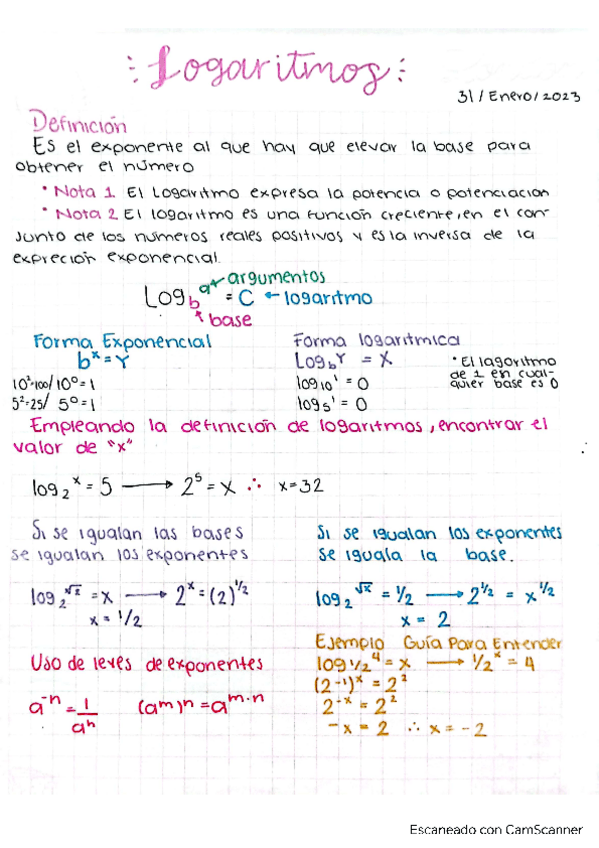 Logaritmos
31/Enero/2023
Definición
Es el exponente al que hay que elevar la base para
obtener el número
• Nota 1 El Logaritmo expresa la potencia o potenciación
• Nota 2 El logaritmo es una función creciente, en el con
junto de los números reales positivos y es la inversa de la
expreción exponencial.
argumentos
Log_b^a = C ← logaritmo
base
Forma Exponencial
b^x = Y
10²=100/10⁰=1
5²=25/ 5⁰=1
Forma logaritmica
Log_b^Y = X
log₁₀¹ = 0
log₅¹ = 0
• El lagoritmo
de 1 en cual-
quier base es 0
Empleando la definición de logaritmos, encontrar el
valor de "x"
log₂^x = 5 → 2⁵ = x ∴ x=32
Si se igualan las bases
se igualan los exponentes
log₂^√2 = x → 2^x = (2)^1/2
x = 1/2
Si se igualan los exponentes
se iguala la base.
log₂^√x = 1/2 → 2^1/2 = x^1/2
x = 2
Uso de leyes de exponentes
a^-n = 1/a^n (a^m)^n = a^m·n
Ejemplo Guía Para Entender
log 1/2^4 = x → 1/2^x = 4
(2^-1)^x = 2²
2^-x = 2²
-x = 2 ∴ x = -2
Escaneado con CamScanner